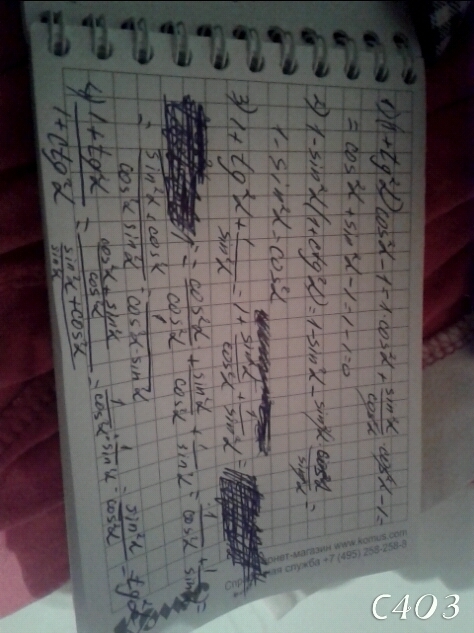 1) (1+tg²α)cos²α-1=1·cos²α+sin²α/cos²α·cos²α-1=
=cos²α+sin²α-1=1-1=0
2) 1-sin²α(1+ctg²α)=1-sin²α-sin²α·cos²α/sin²α=
1-sin²α-cos²α
3) 1+tg²α+1/sin²α=1+sin²α/cos²α+1/sin²α=
=cos²α/cos²α+sin²α/cos²α+1/sin²α=1/cos²α+1/sin²α=
=sin²α+cos²α/cos²α·sin²α=1/cos²α·sin²α
4) 1+tg²α/1+ctg²α=cos²α+sin²α/cos²α/sin²α+cos²α/sin²α=sin²α/cos²α=tg²α
нет-магазин www.komus.com
ная служба +7 (495) 258-258-8
C403